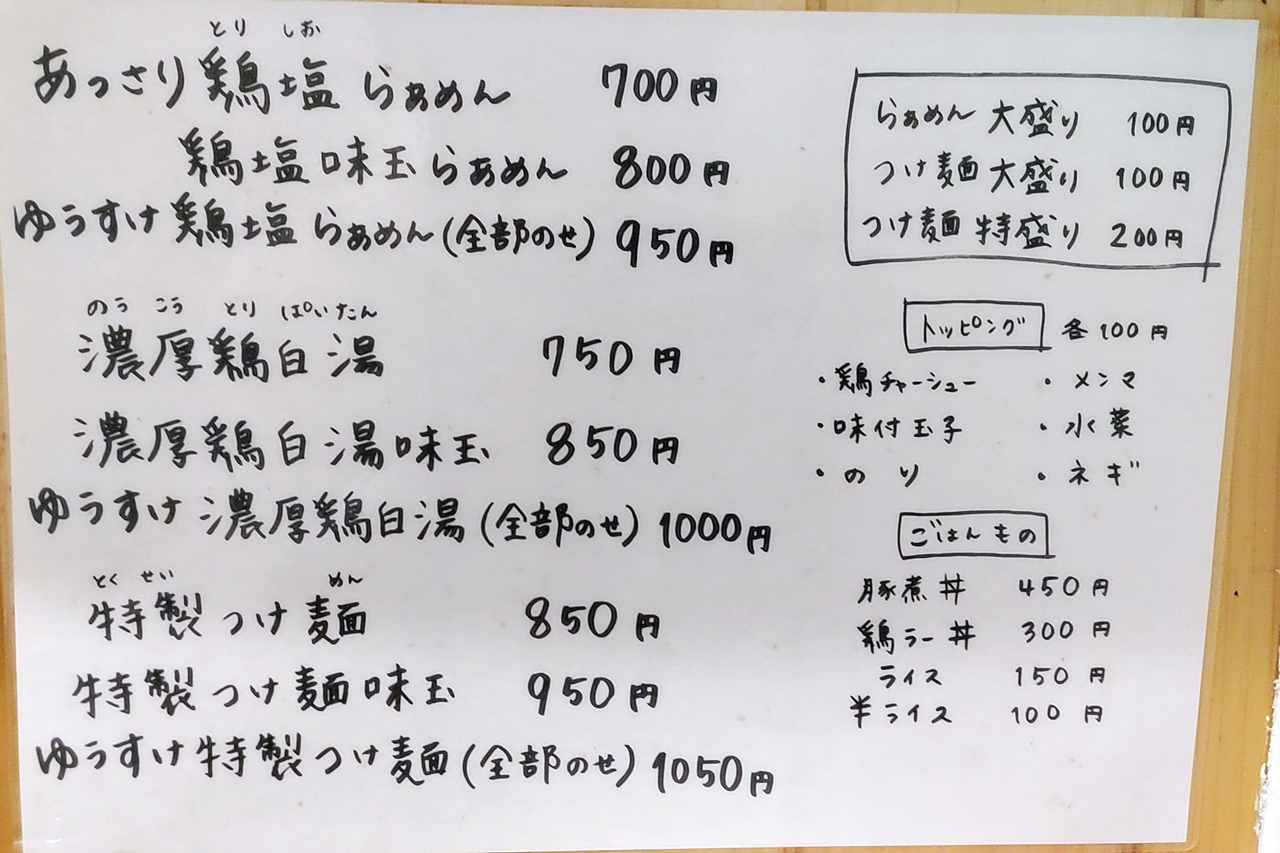 とり しお
あっさり鶏塩らぁめん 700円
鶏塩味玉らぁめん 800円
ゆうすけ鶏塩らぁめん(全部のせ) 950円
のう こう とり ぱいたん
濃厚鶏白湯 750円
濃厚鶏白湯味玉 850円
ゆうすけ濃厚鶏白湯(全部のせ) 1000円
とく せい めん
特製つけ麺 850円
特製つけ麺味玉 950円
ゆうすけ特製つけ麺(全部のせ) 1050円
らぁめん 大盛り 100円
つけ麺 大盛り 100円
つけ麺 特盛り 200円
トッピング 各100円
・鶏チャーシュー ・メンマ
・味付玉子 ・水菜
・のり ・ネギ
ごはんもの
豚煮丼 450円
鶏ラー丼 300円
ライス 150円
半ライス 100円